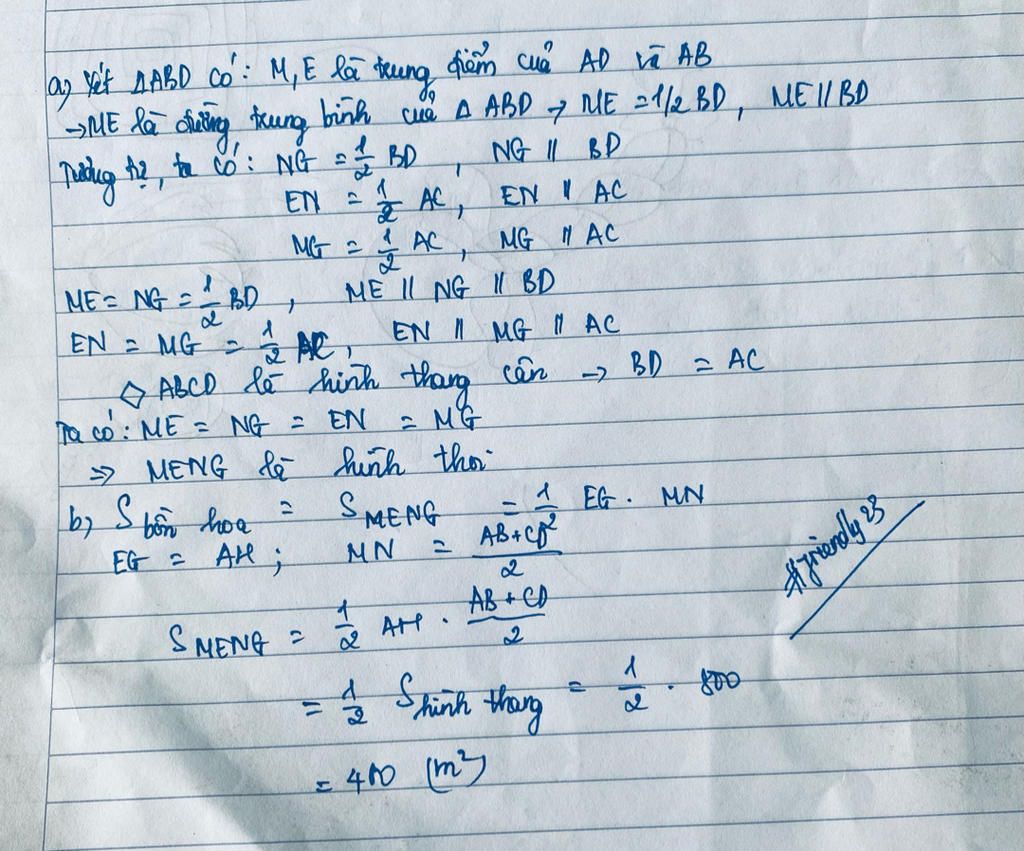 a) Xét ΔABD có: M, E là trung điểm của AD và AB
→ ME là đường trung bình của Δ ABD → ME = 1/2 BD, ME // BD
Tương tự, ta có: NG = 1/2 BD, NG // BD
EN = 1/2 AC, EN // AC
MG = 1/2 AC, MG // AC
ME = NG = 1/2 BD, ME // NG // BD
EN = MG = 1/2 AC, EN // MG // AC
◇ ABCD là hình thang cân → BD = AC
Ta có: ME = NG = EN = MG
⇒ MENG là hình thoi
b) S bồn hoa = S MENG = 1/2 EG . MN
EG = AH ; MN = (AB + CD)/2
#friendly23
S MENG = 1/2 AH . (AB + CD)/2
= 1/2 S hình thang = 1/2 . 800
= 400 (m²)